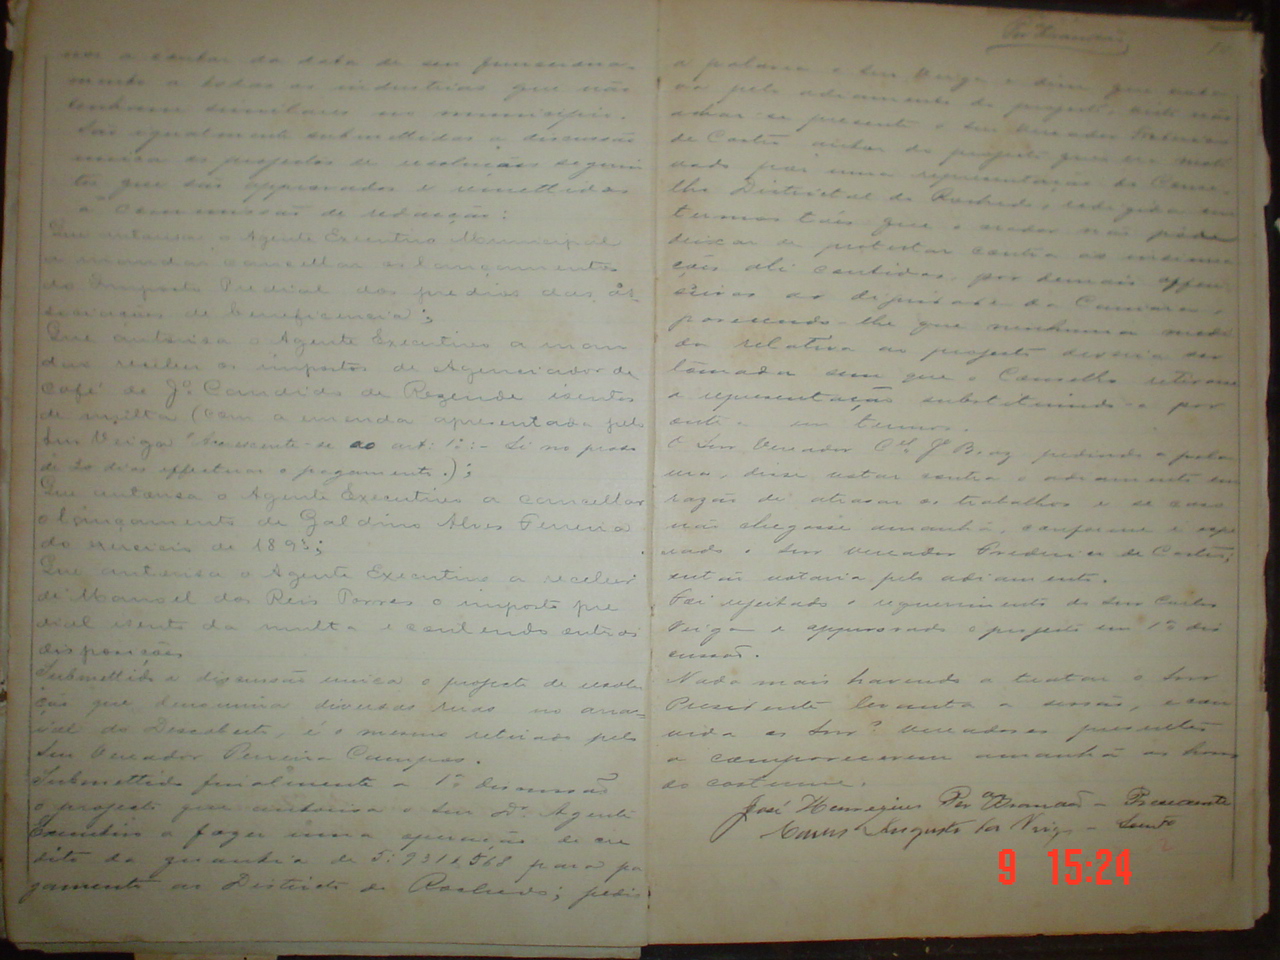 nos a contar da data de seu funcciona-
mento a todas as industrias que não
tenham similares no municipio.
São igualmente submettidos a discussão
unica os projectos de resoluções seguin
tes que são approvados e remettidos
a commissão de redacção:
Que autorisa o Agente Executivo Municipal
a mandar cancellar os lançamentos
do Imposto Predial dos predios das as-
sociações de beneficencia;
Que autorisa o Agente Executivo a man
dar receber os impostos de Agenciador de
café de Jº Candido de Rezende isentos
de multa (com a emenda apresentada pelo
Snr Veiga "Accrescente-se ao art: 1º: - Si no praso
de 30 dias effectuar o pagamento.);
Que autorisa o Agente Executivo a cancellar
o lançamento de Galdino Alves Ferreira
do exercicio de 1893;
Que autorisa o Agente Executivo a receber
de Manoel dos Reis Torres o imposto pre
dial isento da multa e contendo outras
disposições
Submettido a discussão unica o projecto de resolu
ção que denomina diversas ruas no arra-
ial do Descoberto, é o mesmo retirado pelo
Snr Vereador Pereira Campos.
Submettido finalmente a 1ª discussão
o projecto que autorisa o Snr Dr Agente
Executivo a fazer uma operação de cre
dito da quantia de 5:931$568 para pa
gamento ao Districto do Rochedo; pedio
Per Brandão
a palavra o Snr Veiga e disse que
pelo adiamento do projecto, visto não
achar-se presente o Snr Vereador Frederico
de Castro author do projecto que era moti
vado por uma representação do Conse-
lho Districtal do Rochedo, redigida em
termos táes que o orador não póde
deixar de protestar contra as insinua
ções ali contidas, por demais offen
sivas ao dignidade da Camara,
parecendo-lhe que nenhuma medi
da relativa ao projecto deveria ser
tomada sem que o Conselho retirasse
a representação substituindo-a por
outra em termos.
O Snr Vereador Cel Jº Braz pedindo a pala
vra, disse estar contra o adiamento em
razão de atrasar os trabalhos e se caso
não chegasse amanhã, conforme é espe
rado o Snr Vereador Frederico de Castro,
então votaria pelo adiamento.
Foi rejeitado o requerimento do Snr Carlos
Veiga e approvado o projecto em 1ª dis
cussão.
Nada mais havendo a tratar o Snr
Presidente levanta a sessão, e con
vida os Snrs Vereadores presentes
a comparecerem amanhã as horas
do costume.
José Per Brandão - Presidente
Augusto da Veiga -
9 15:24